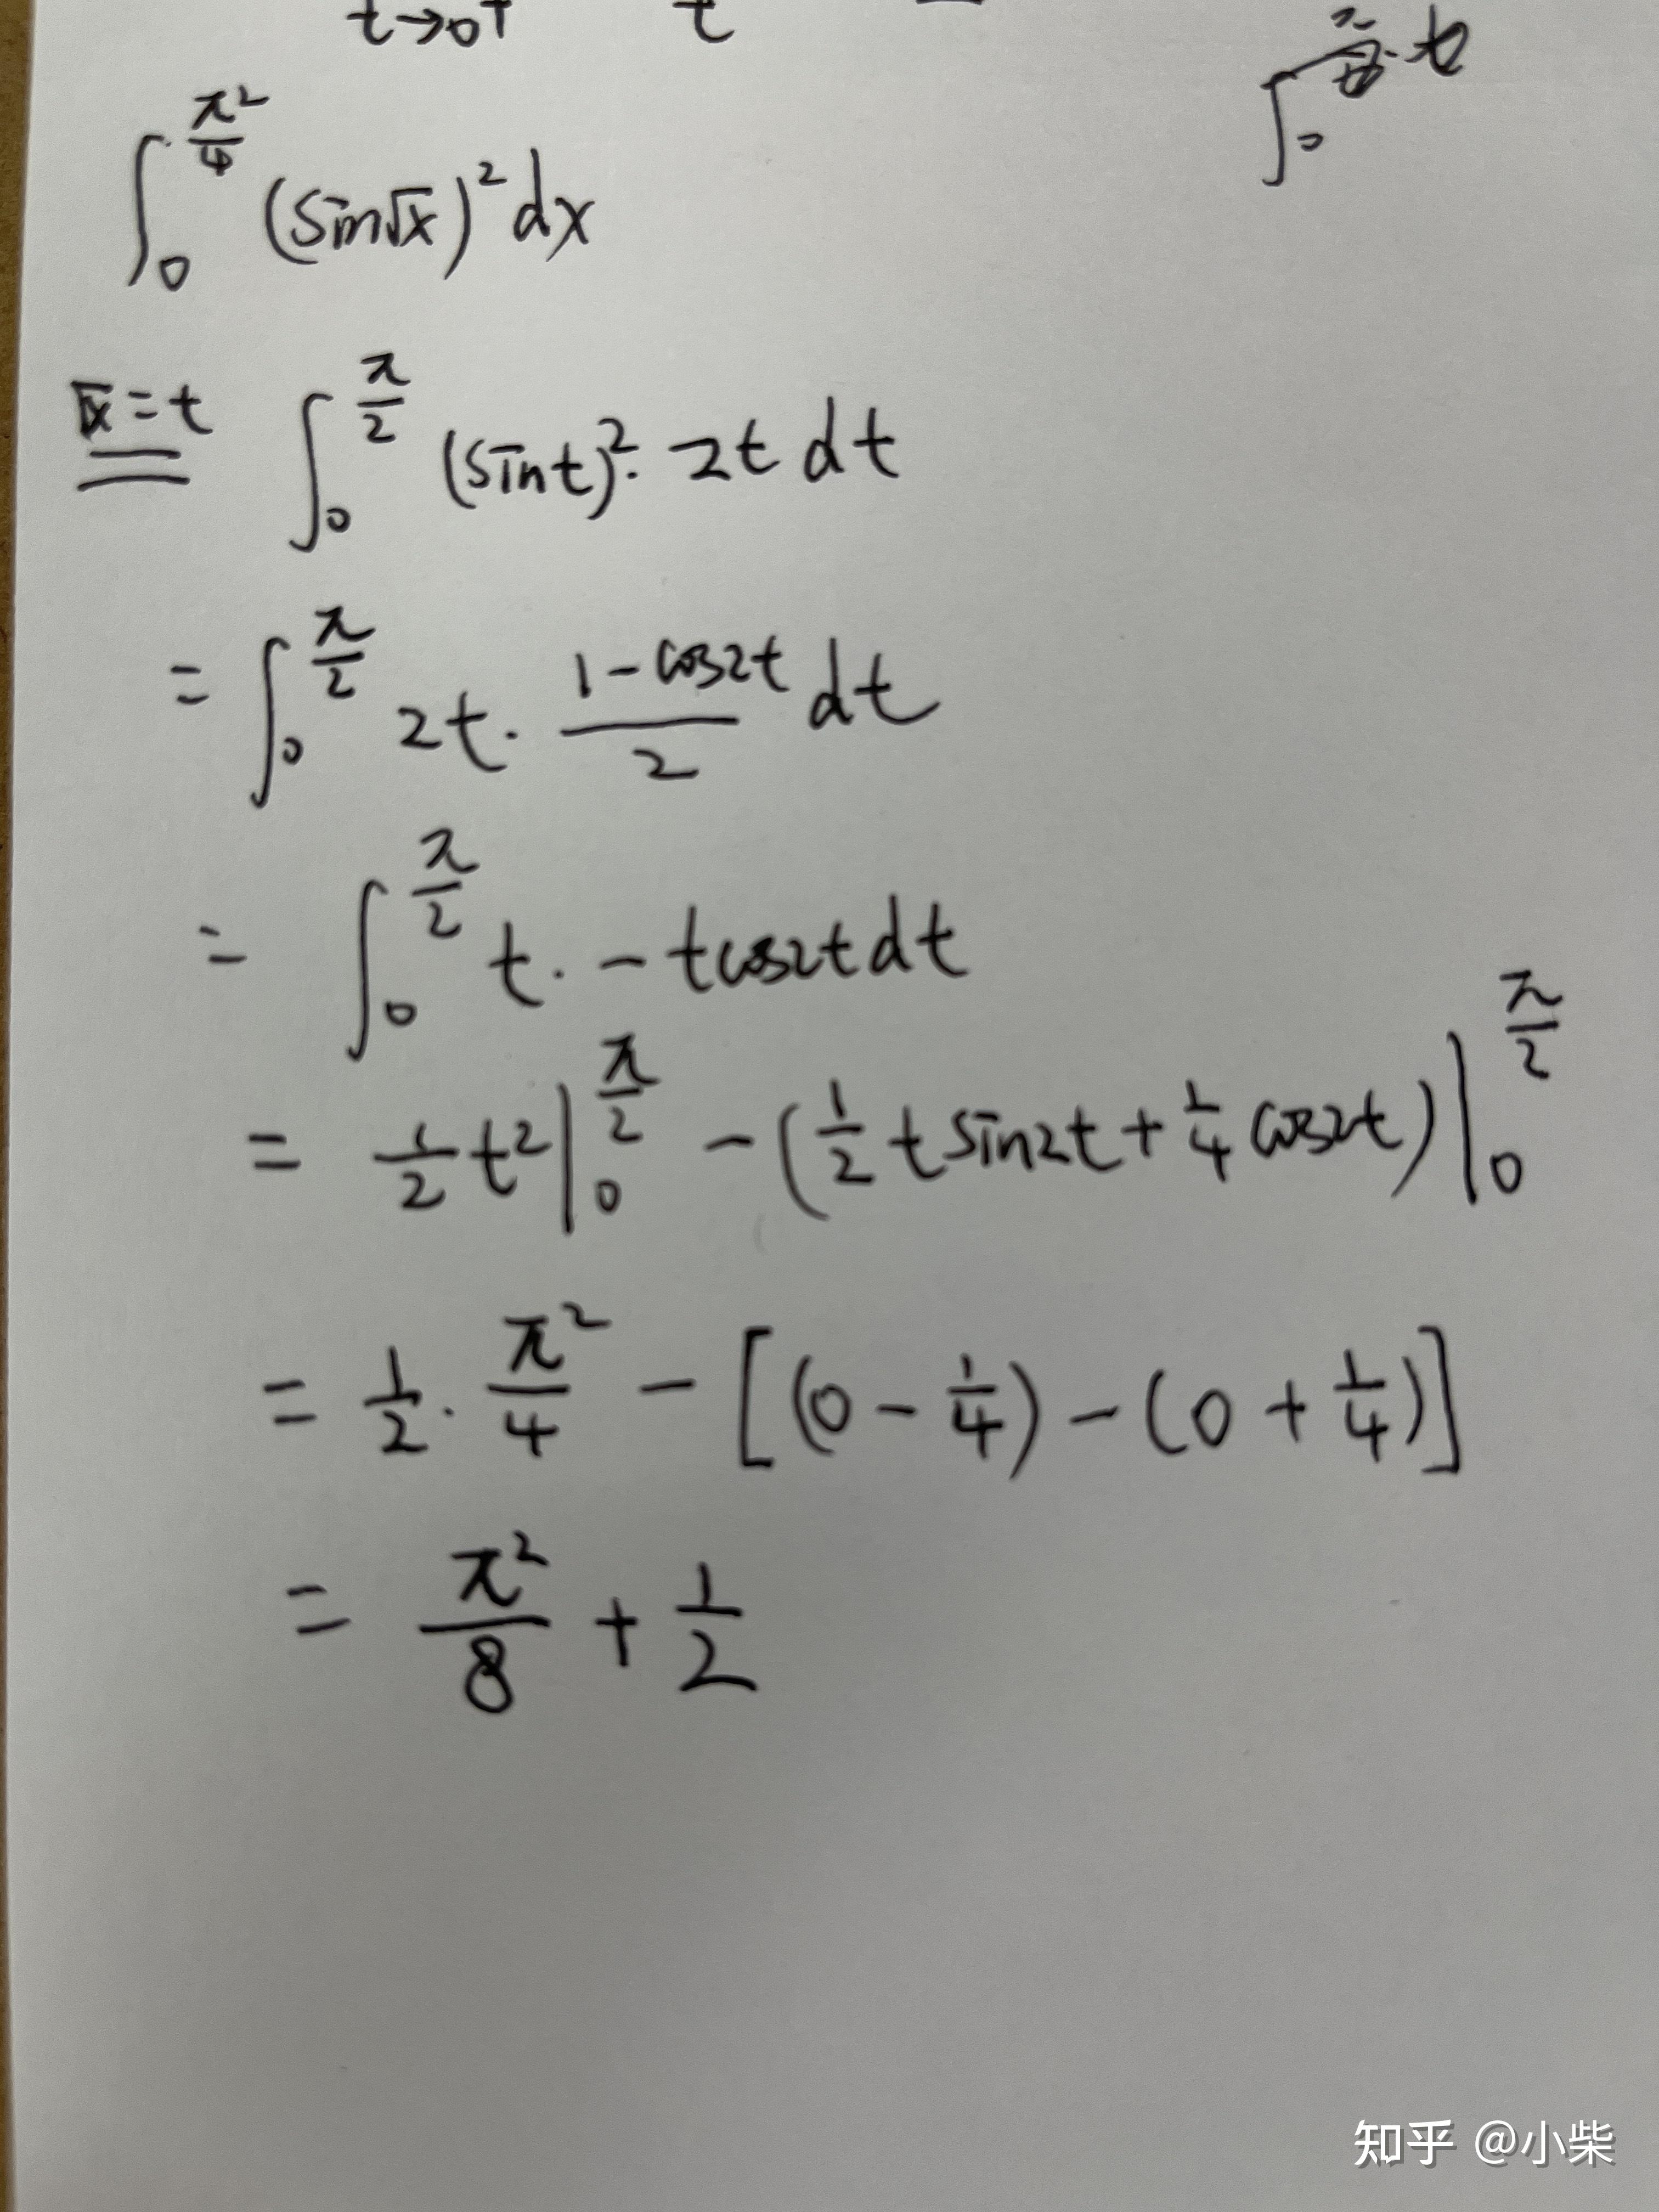 t→0⁺ t
∫₀^{π²/4} (sin√x)² dx
√x = t ∫₀^{π/2} (sint)²· 2t dt
= ∫₀^{π/2} 2t · (1-cos2t)/2 dt
= ∫₀^{π/2} t · - tcos2t dt
= 1/2 t² |₀^{π/2} - (1/2 t sin2t + 1/4 cos2t) |₀^{π/2}
= 1/2 · π²/4 - [(0 - 1/4) - (0 + 1/4)]
= π²/8 + 1/2
知乎 @小柴